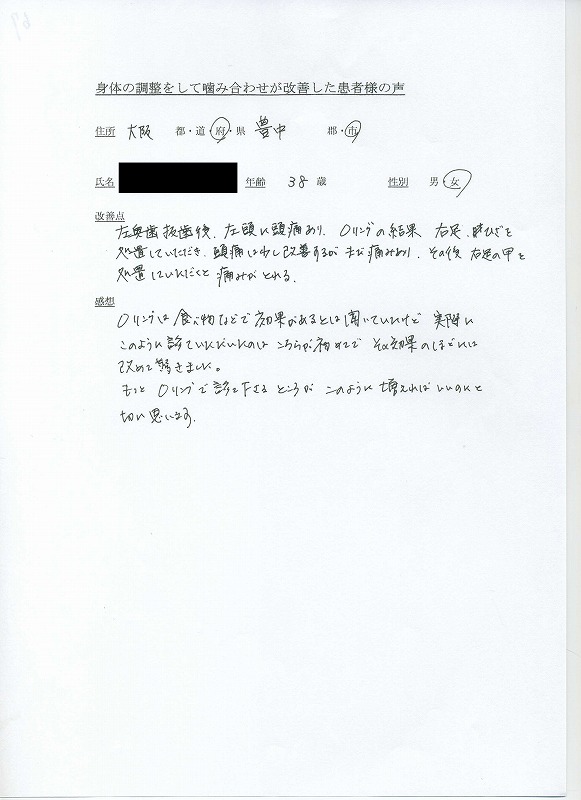 身体の調整をして噛み合わせが改善した患者様の声
住所 大阪 都・道・府・県 豊中 郡・市
氏名 年齢 38 歳 性別 男・女
改善点
左奥歯抜歯後、左頭に頭痛あり。Oリングの結果 右足、ひざを
処置していただき、頭痛は少し改善するがまだ痛みあり。その後 右足の甲を
処置していただくと 痛みがとれる。
感想
Oリングは食べ物などで効果があるとは聞いていたけど 実際に
このように診ていただいたのは こちらが初めてで その効果のほどには
改めて驚きました。
もっと Oリングで診て下さる ところが このように増えればいいのにと
切に思います。